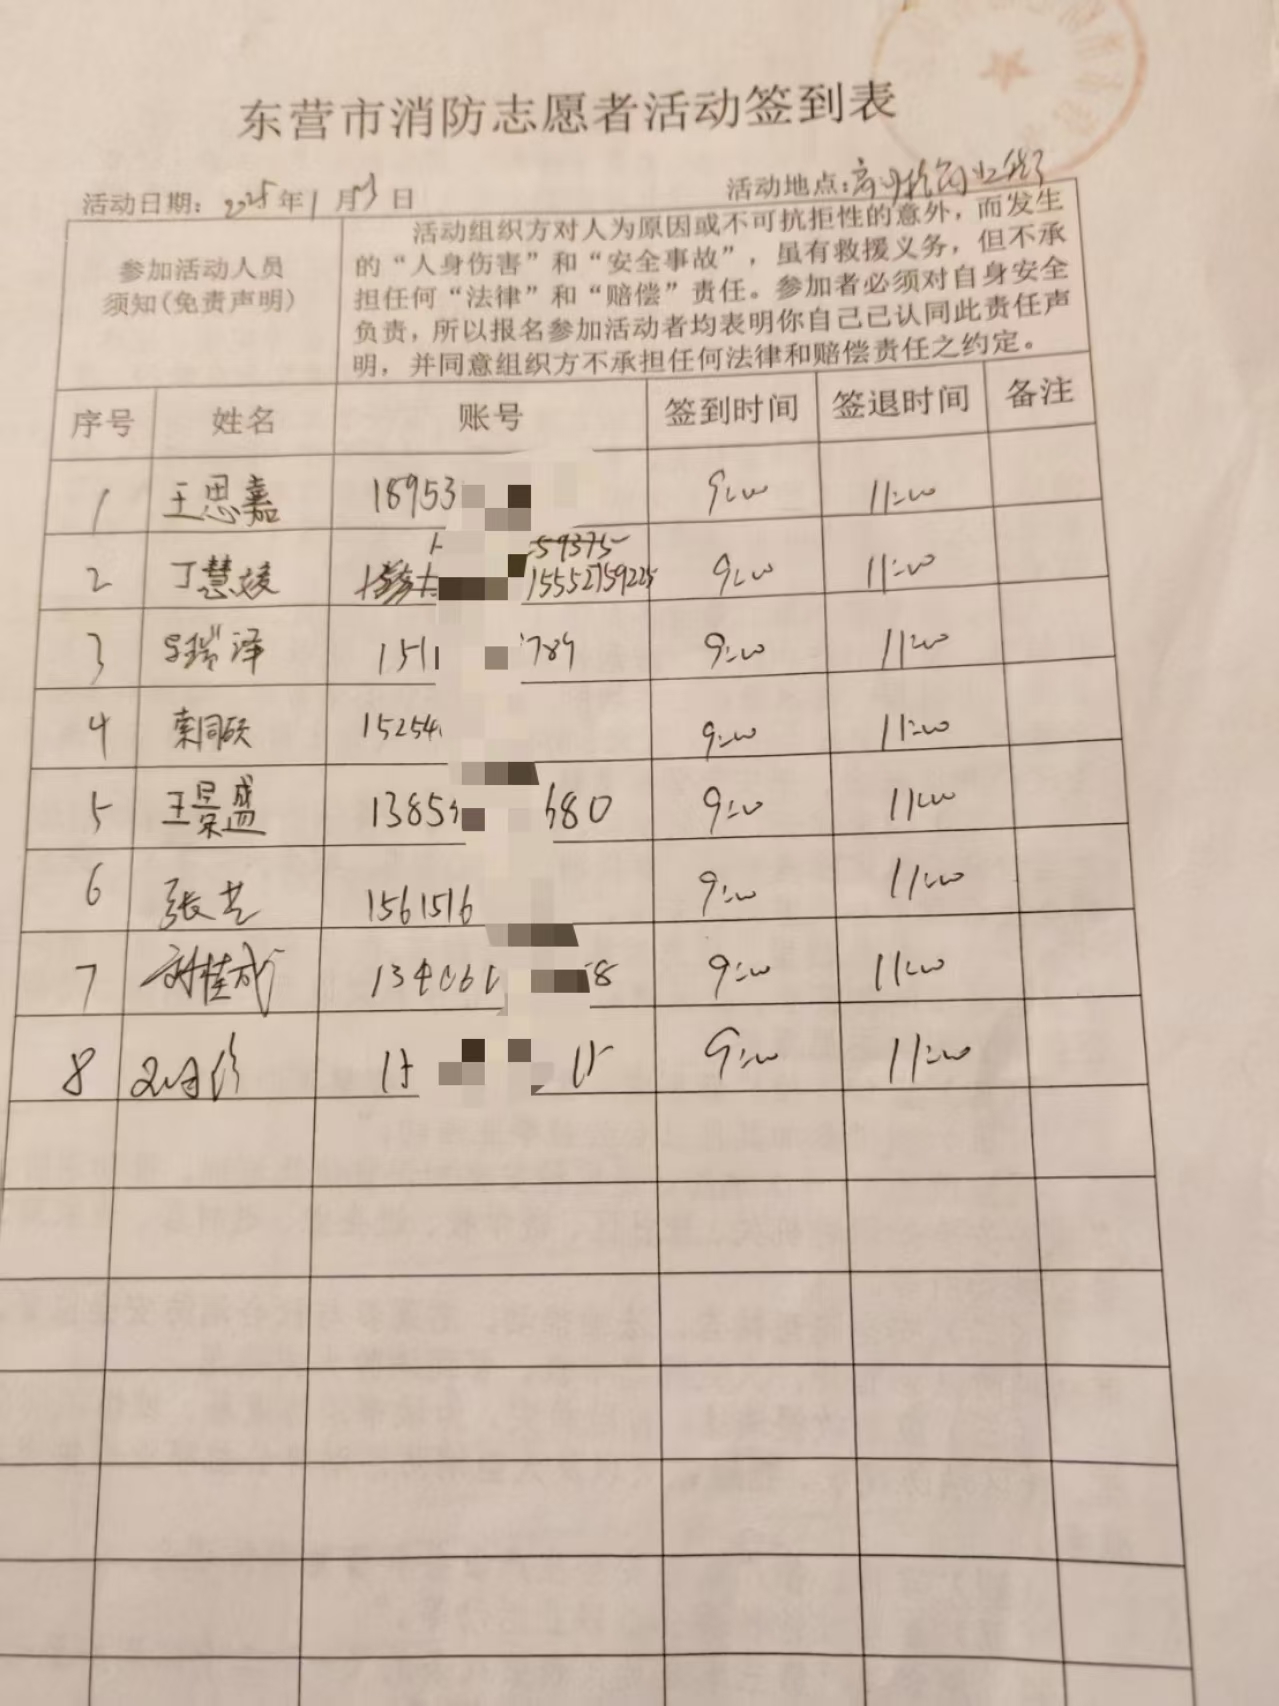 东营市消防志愿者活动签到表
活动日期: 2025年1月13日 活动地点:
参加活动人员
须知(免责声明)
活动组织方对人为原因或不可抗拒性的意外，而发生
的“人身伤害”和“安全事故”，虽有救援义务，但不承
担任何“法律”和“赔偿”责任。参加者必须对自身安全
负责，所以报名参加活动者均表明你自己已认同此责任声
明，并同意组织方不承担任何法律和赔偿责任之约定。
序号 姓名 账号 签到时间 签退时间 备注
1 王思嘉 18953 9:00 11:00
59375
2 丁慧 15552759225 9:00 11:00
3 瑞泽 151 789 9:00 11:00
4 索同硕 15254 9:00 11:00
5 王景盛 1385 680 9:00 11:00
6 张艺 1561516 9:00 11:00
7 刘桂成 134061 8 9:00 11:00
8 15 9:00 11:00